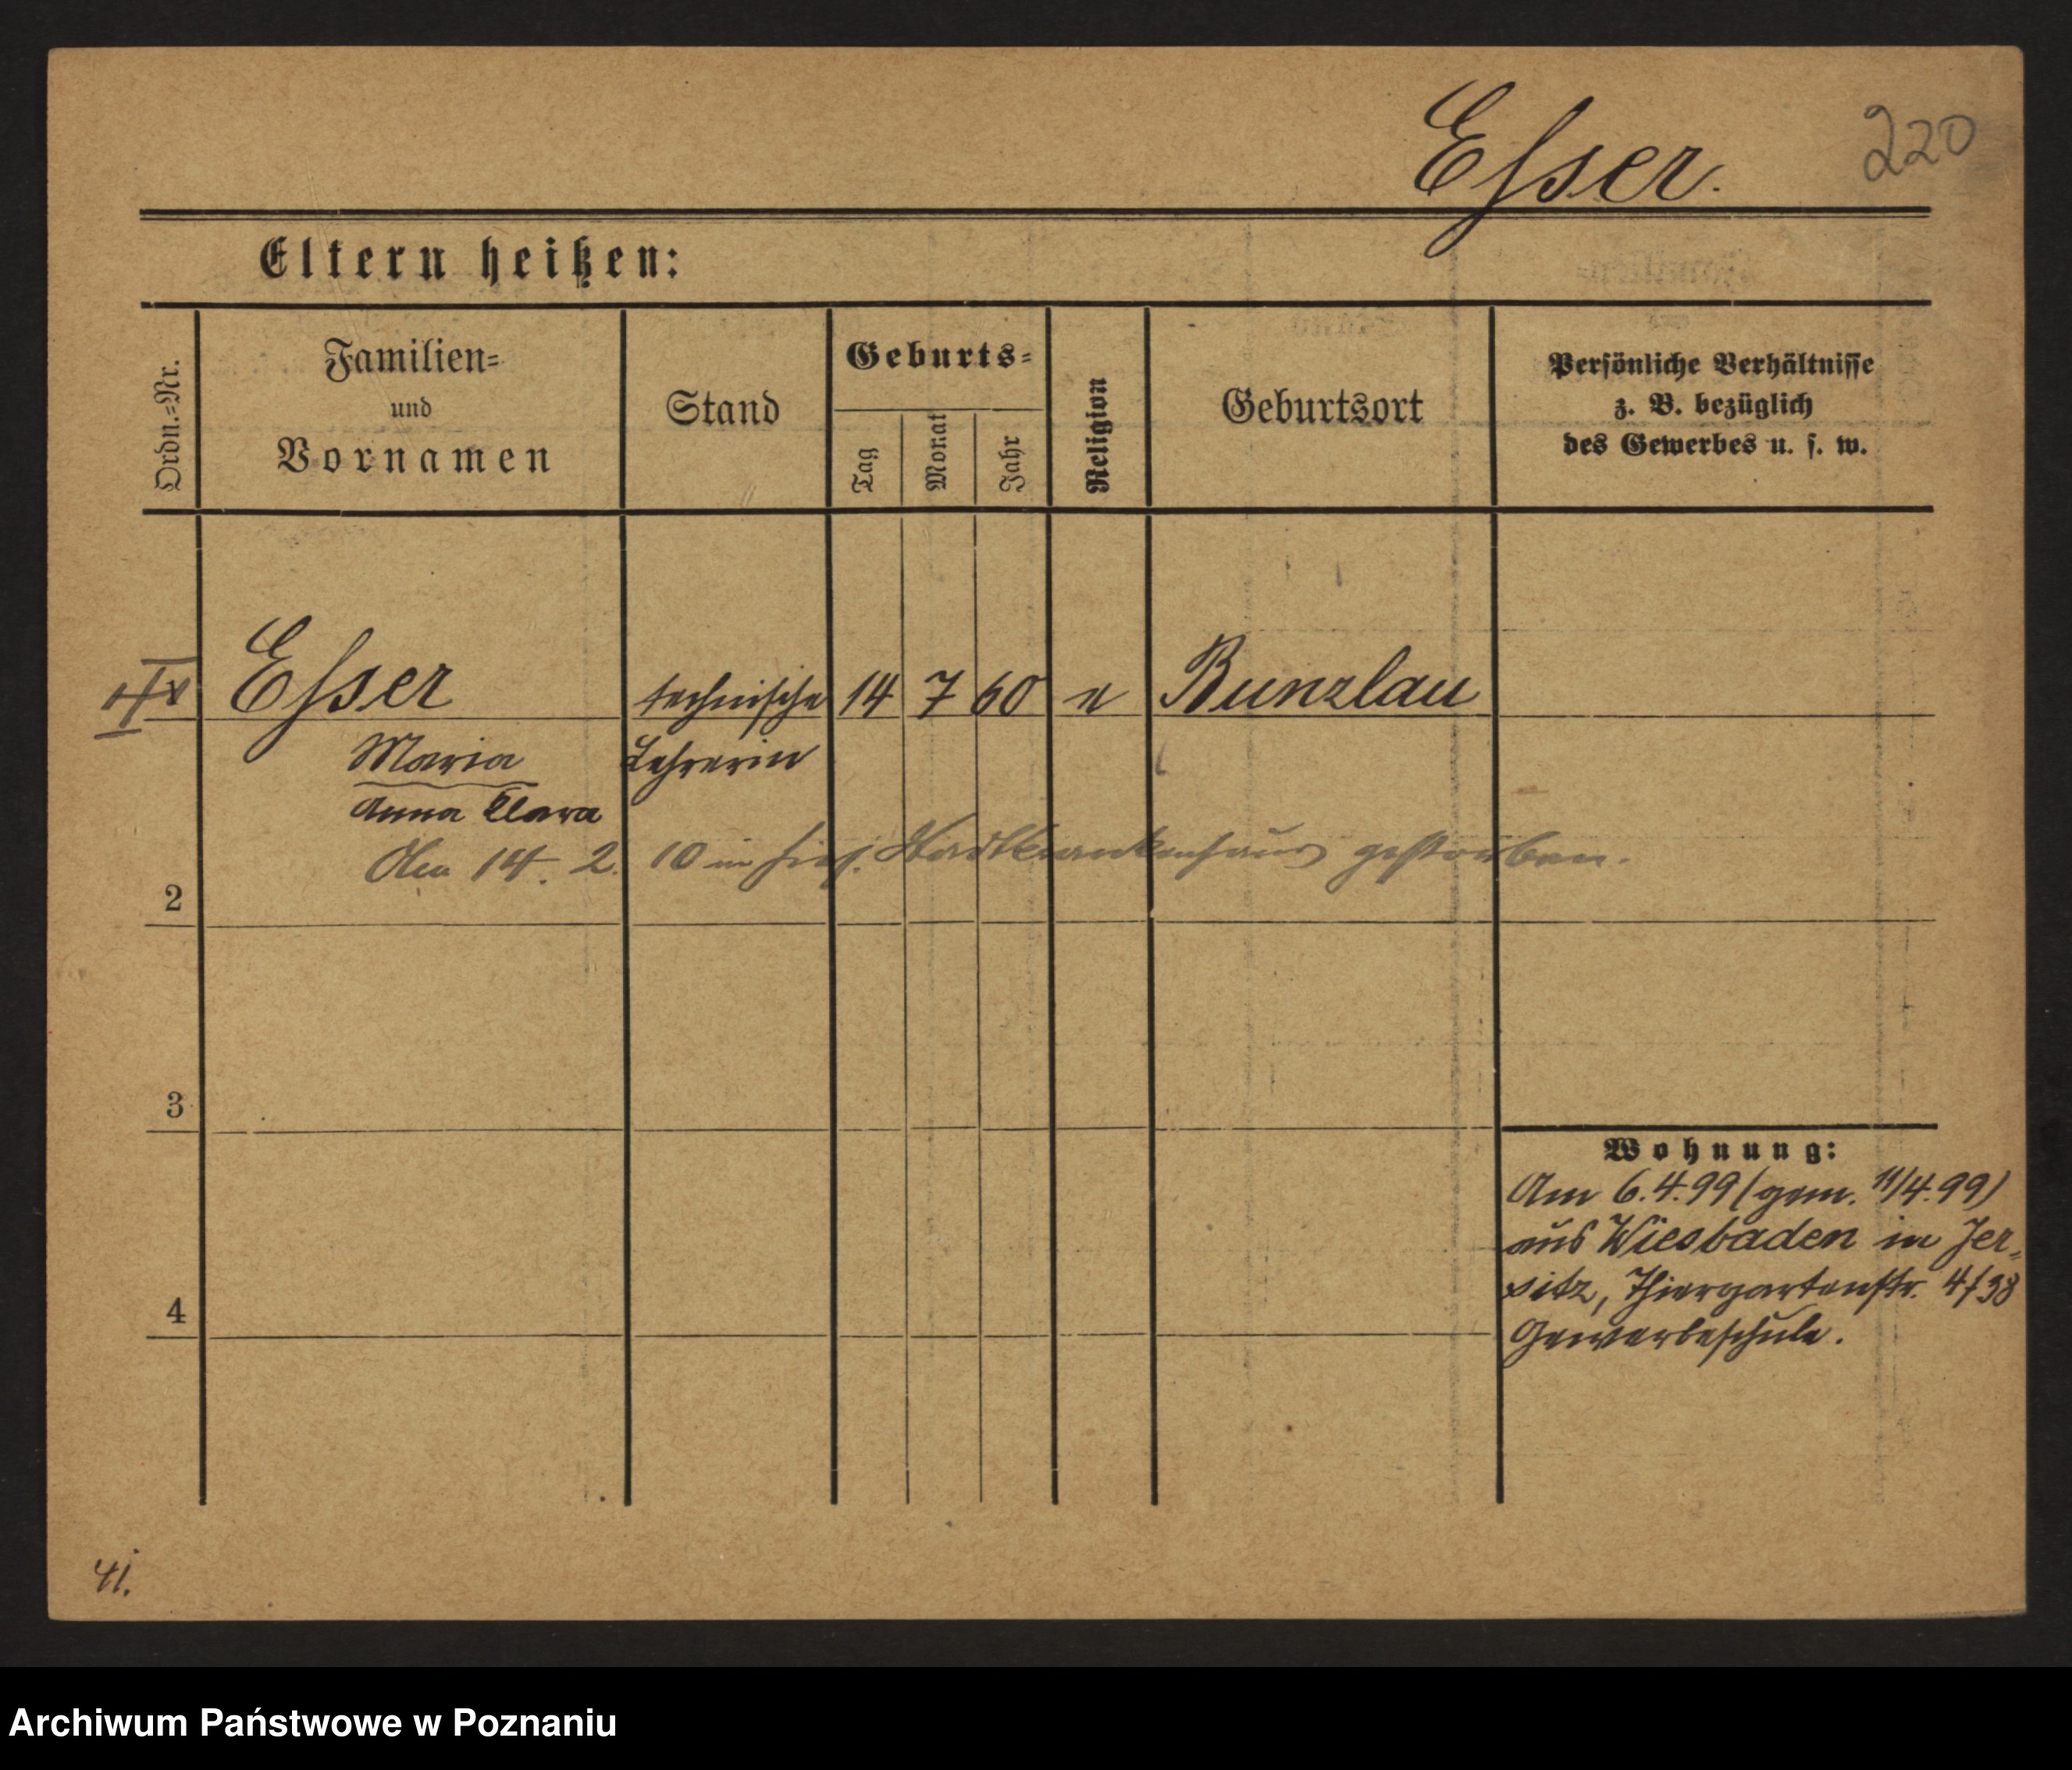 Esser.
220
Eltern heißen:
Ordn.-Nr.
Familien-
und
Vornamen
Stand
Geburts-
Tag
Monat
Jahr
Religion
Geburtsort
Persönliche Verhältnisse
z. B. bezüglich
des Gewerbes u. s. w.
Esser technische 14 7 60 e Bunzlau
Maria Lehrerin
Anna Clara
Am 14. 2. 10 im hies. Stadtkrankenhaus gestorben.
2
3
Wohnung:
Am 6.4.99 (gem. 11/4.99)
aus Wiesbaden in Jer-
sitz, Thiergartenstr. 4/38
4
Gewerbeschule.
41.
Archiwum Państwowe w Poznaniu